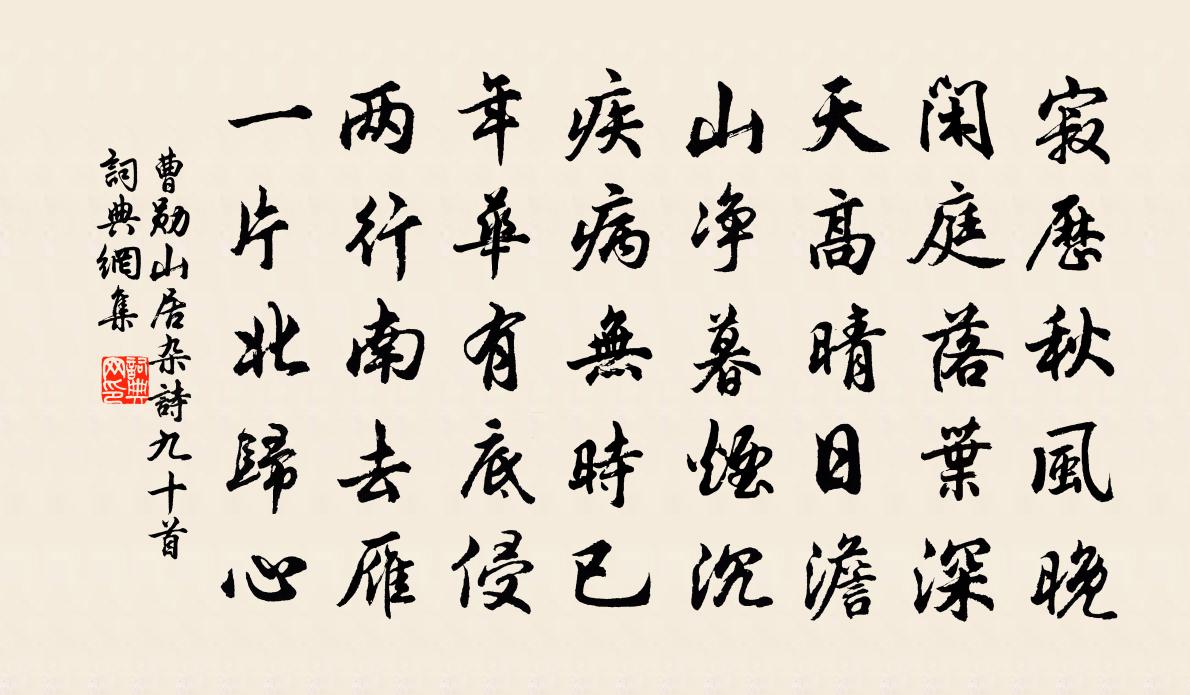 寂歷秋風晚
閑庭落葉深
天高晴日澹
山净暮煙沉
疾病無時已
年華有底侵
两行南去雁
一片北歸心
曹勋山居杂詩九十首
詞典網集
詞典
网印